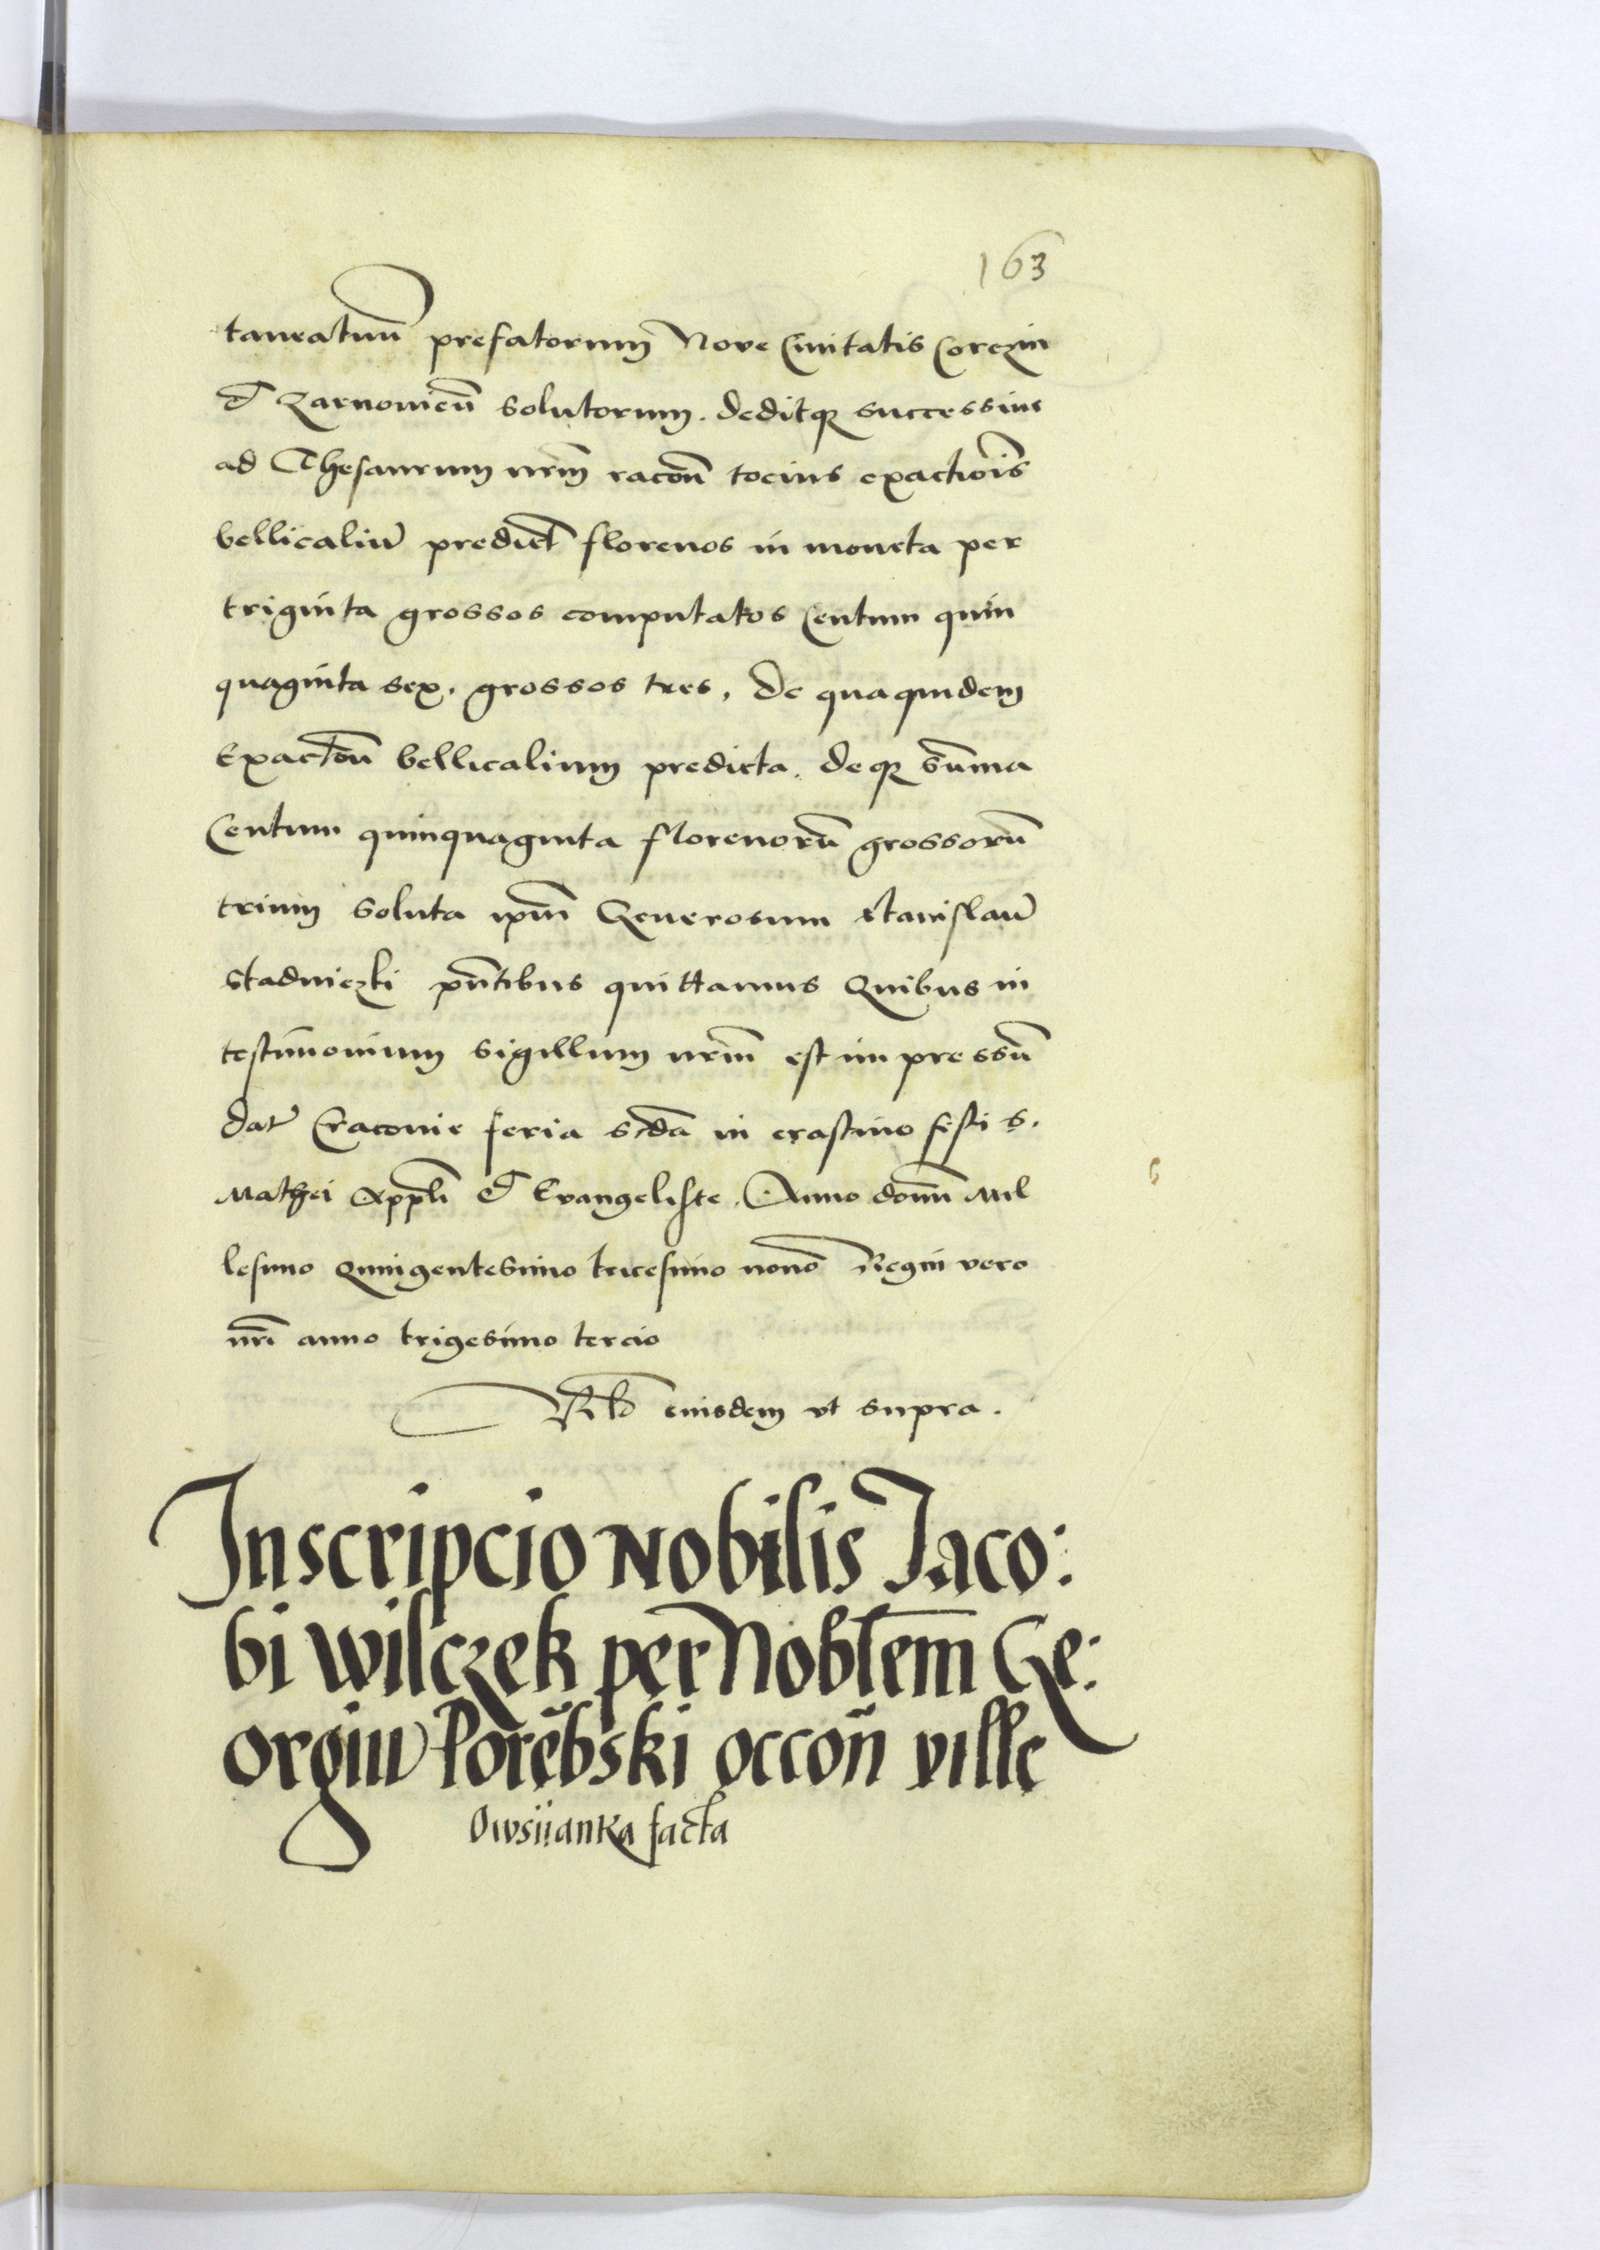 163
taneatuū prefatorum Nove Civitatis Corczin
et Zarnovieñ solutorum. deditq̃ successive
ad Thesaurum nrm̃ racoñ tocius exactiõis
bellicaliũ predict̃ florenos in moneta per
triginta grossos computatos Centum quin
quaginta sex. grossos tres, De qua quidem
Exactõñ bellicalium predicta. deq̃ sũma
Centum quinquaginta florenorũ grossorũ
trium soluta ipm̃ Generosum Stanislaũ
Stadniczki pñtibus quittamus Quibus in
testimonium sigillum nrm̃ est impressũ
dat̃ Cracovie feria scdã in crastino festi S.
Mathei Appłi et Evangeliste. Anno domĩ Mil
lesimo Quingentesimo tricesimo nono Regni vero
nrĩ anno trigesimo tercio
Rło eiusdem ut supra.
Inscripcio Nobilis Jaco:
bi Wilczek per Nobłem Ge:
orgiũ Porẽbski occoñ ville
Owsijanka facta